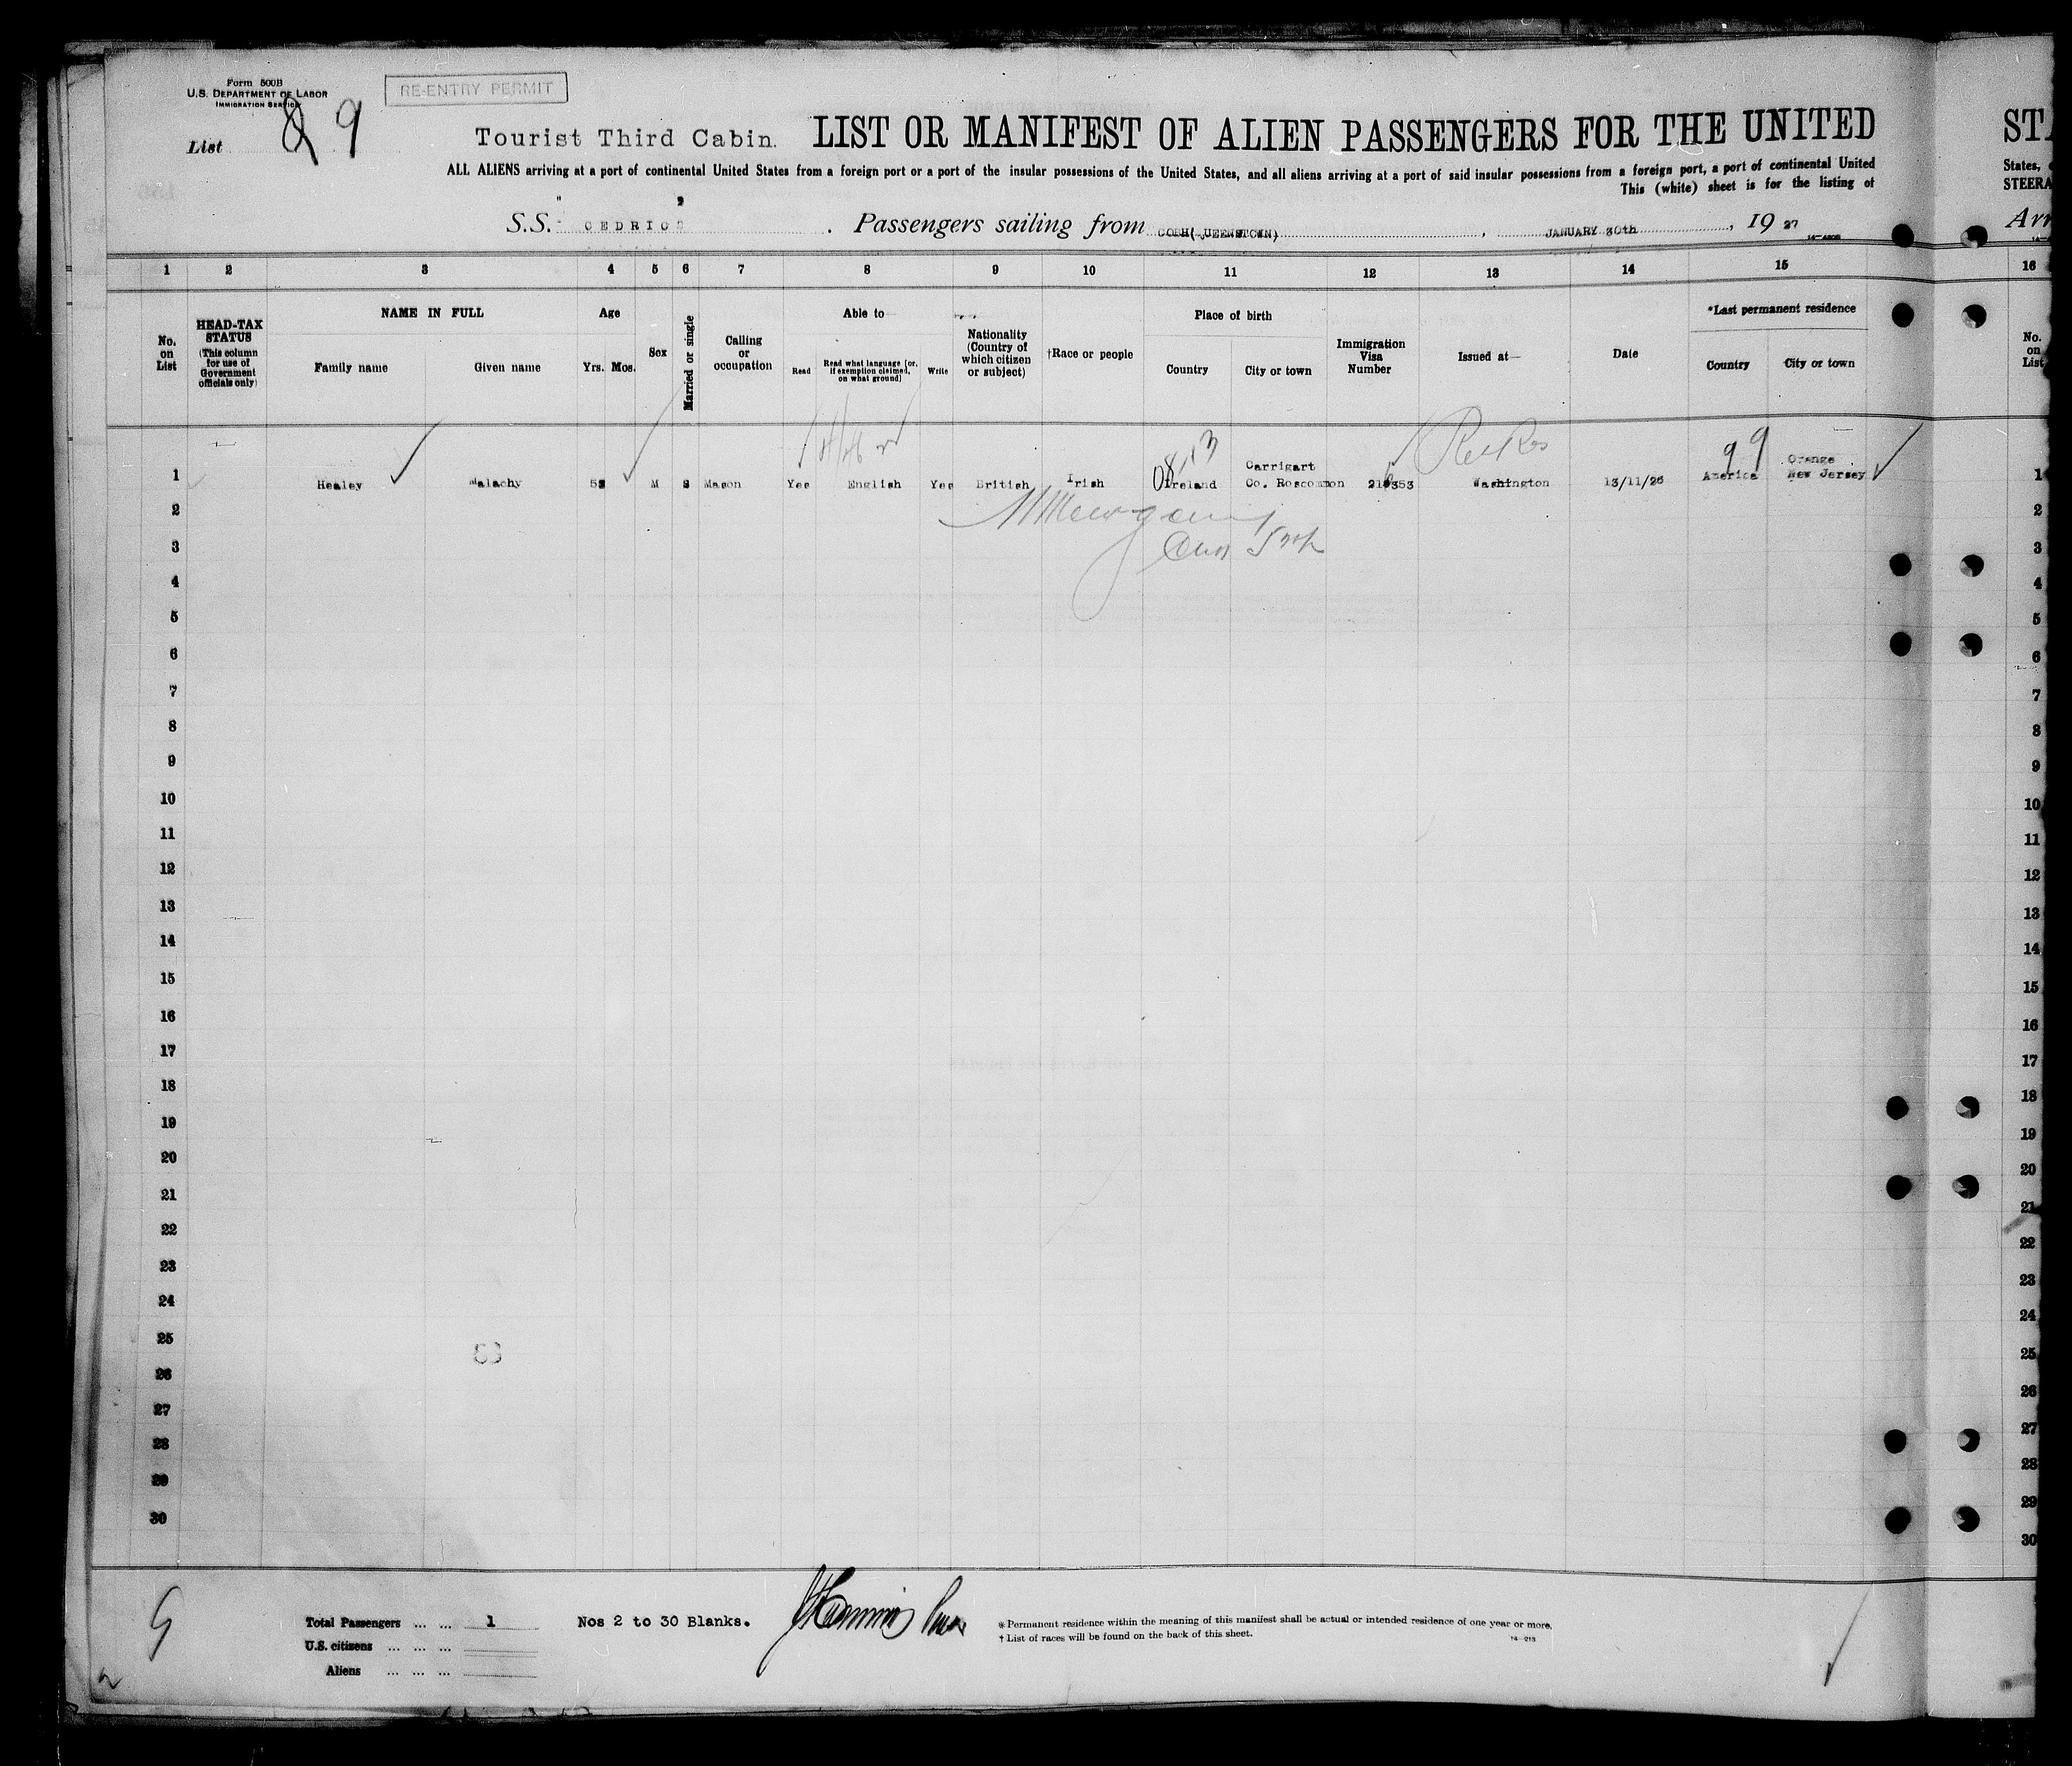 Form 500B
U.S. DEPARTMENT OF LABOR
IMMIGRATION SERVICE
RE-ENTRY PERMIT
List 9
Tourist Third Cabin. LIST OR MANIFEST OF ALIEN PASSENGERS FOR THE UNITED
ALL ALIENS arriving at a port of continental United States from a foreign port or a port of the insular possessions of the United States, and all aliens arriving at a port of said insular possessions from a foreign port, a port of continental United
This (white) sheet is for the listing of
S.S. " CEDRIC . Passengers sailing from COBH( UEENSTOWN) , JANUARY 30th , 19 27
1 2 3 4 5 6 7 8 9 10 11 12 13 14 15
No. on List
HEAD-TAX STATUS
(This column for use of Government officials only)
NAME IN FULL
Family name Given name
Age
Yrs. Mos.
Sex
Married or single
Calling or occupation
Able to—
Read
Read what language [or, if exemption claimed, on what ground]
Write
Nationality (Country of which citizen or subject)
†Race or people
Place of birth
Country City or town
Immigration Visa Number
Issued at—
Date
*Last permanent residence
Country City or town
99
1 Healey Malachy M S Mason Yes English Yes British Irish Ireland Carrigart Co. Roscommon Washington 13/11/26 America Orange New Jersey
2
3
4
5
6
7
8
9
10
11
12
13
14
15
16
17
18
19
20
21
22
23
24
25
26
27
28
29
30
Total Passengers ... ... 1
U.S. citizens ... ... ...
Aliens ... ... ...
Nos 2 to 30 Blanks.
* Permanent residence within the meaning of this manifest shall be actual or intended residence of one year or more.
† List of races will be found on the back of this sheet.
14—213
STA
States,
STEERA
Arr
16
No. on List
1
2
3
4
5
6
7
8
9
10
11
12
13
14
15
16
17
18
19
20
21
22
23
24
25
26
27
28
29
30